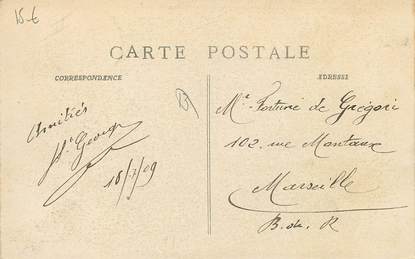 15 €
CARTE POSTALE
CORRESPONDANCE
ADRESSE
Amitiés
St Georges
18/7/09
Mr Fortuné de Grégori
102, rue Montaux
Marseille
B. du R